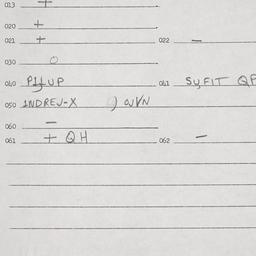 013 +
020 +
021 + 022 –
030 O
040 041 SyFIT QF
050 INDREJ-X
060 –
061 + QH 062 –